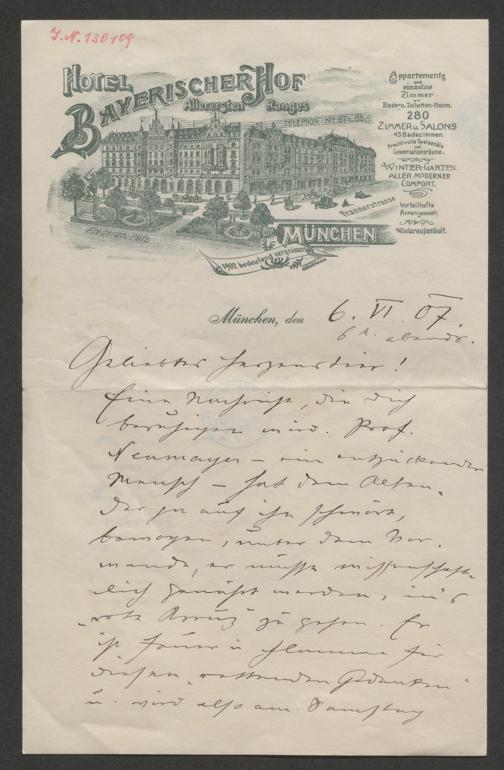 J.N. 130109
HOTEL
BAYERISCHER HOF
Allerersten Ranges
TELEPHON
Promenade-Platz
Prannerstrasse
MÜNCHEN
1902 bedeutend vergrössert
Appartements
und
einzelne
Zimmer
mit
Bade- u. Toiletten-Räum.
280
ZIMMER u. SALONS
Badezimmer.
Prachtvolle Speisesäle
und
Conversationsräume.
WINTER-GARTEN.
ALLER MODERNER
COMFORT.
Vorteilhafte
Arrangements
Winteraufenthalt.
München, den 6. VI. 07.
6 h. abends.
Geliebtes Herzenstier!
Eine Nachricht, die Dich
beruhigen wird. Prof.
Neumayer – ein entzückender
Mensch – hat dem Alten,
der ja auf ihn schwört,
bewogen, unter dem Vor-
wande, er müsse wissenschaft-
lich genährt werden, in's
"rote Kreuz" zu gehen. Er
ist Feuer u. Flamme für
diesen "rettenden Gedanken"
u. wird also am Samstag